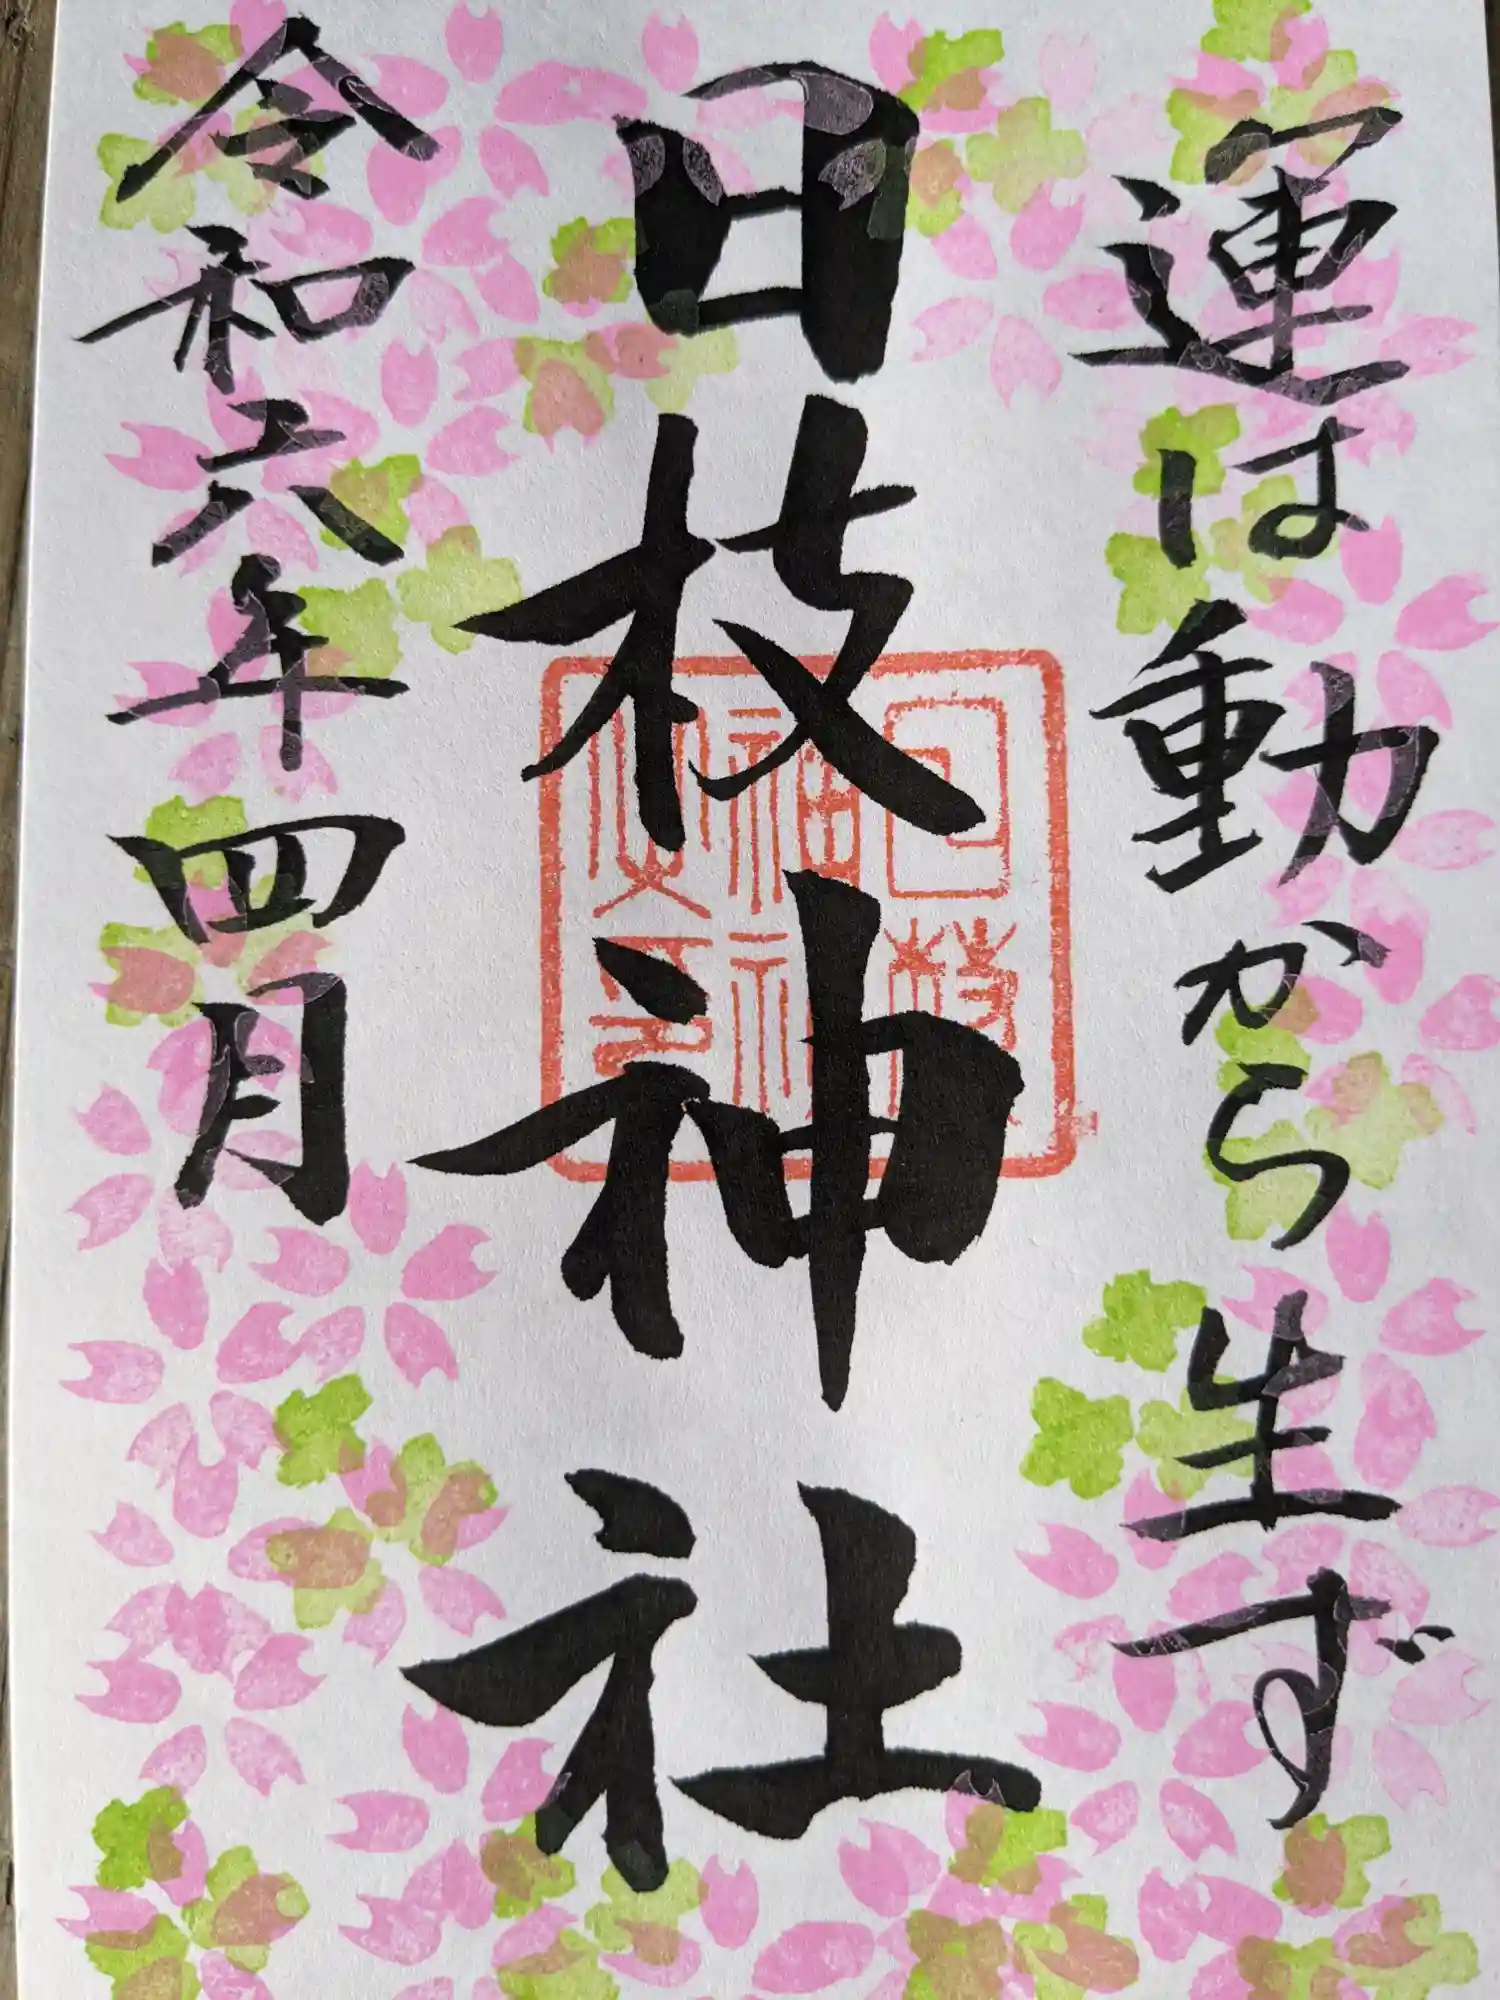 運は動から生ず
日枝神社
令和六年四月